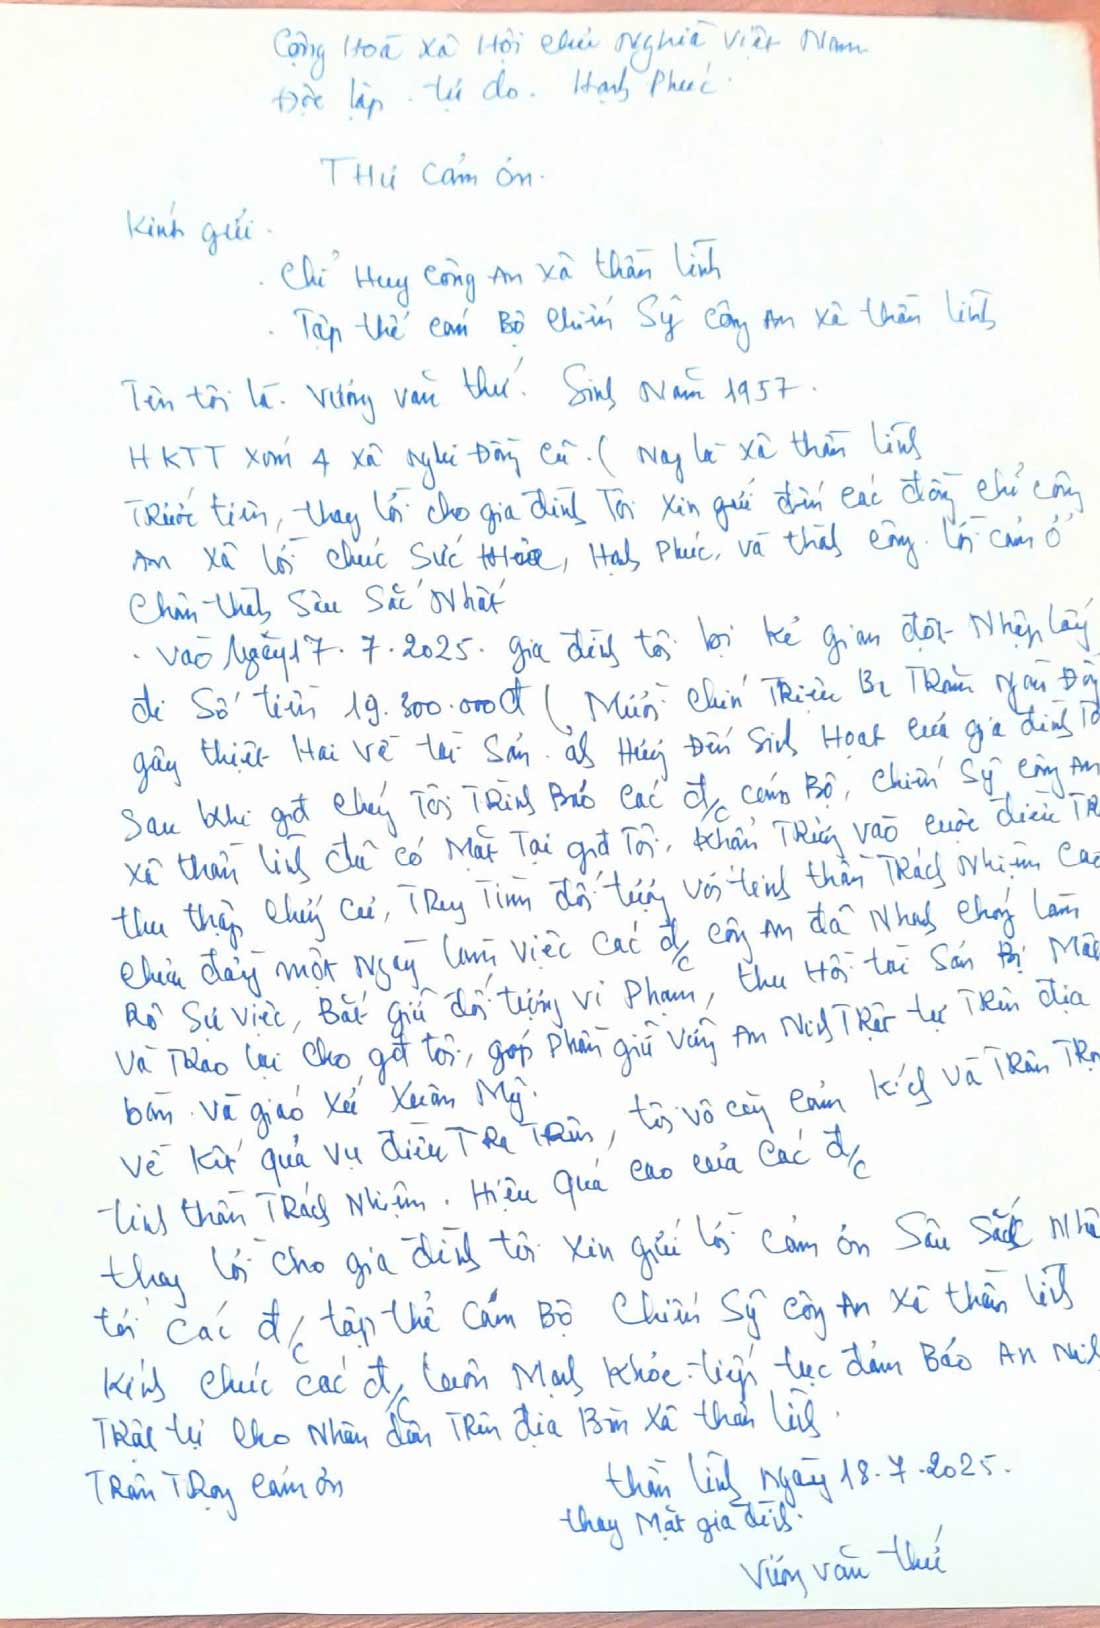 Cộng Hoà Xã Hội Chủ Nghĩa Việt Nam
Độc lập. tự do. Hạnh Phúc.
THư cảm ơn.
Kính gửi.
. Chỉ Huy Công An xã thần lĩnh
. Tập thể cán Bộ Chiến Sỹ Công An xã thần lĩnh
Tên tôi là. Vương văn thư. Sinh Năm 1957.
HKTT xóm 4 xã Nghi Đồng cũ. ( Nay là xã thần lĩnh
Trước tiên, thay lời cho gia đình Tôi xin gửi đến các đồng chí công
An xã lời chúc Sức khỏe, Hạnh Phúc, và thành công. lời cảm ơ
Chân thành Sâu Sắc Nhất
. vào Ngày 17. 7. 2025. gia đình tôi bị kẻ gian đột Nhập lấy
đi Số tiền 19.300.000đ ( Mười chín Triệu Ba Trăm Ngàn Đồ
gây thiệt Hại về tài Sản. ảnh Hưởng Đến Sinh Hoạt của gia đình Tô
Sau khi gđ chúng Tôi Trình Báo các đ/c cán Bộ, chiến Sỹ Công An
xã thần lĩnh đã có Mặt Tại gđ Tôi, khẩn Trương vào cuộc điều TR
thu thập chứng cứ, Truy Tìm đối tượng với tinh thần Trách Nhiệm Cao
chưa đầy một Ngày làm việc các đ/c công An đã Nhanh chóng làm
Rõ Sự việc, Bắt giữ đối tượng vi Phạm, thu Hồi tài Sản Bị Mấ
và Trao lại cho gđ tôi, góp Phần giữ vững An Ninh Trật tự Trên địa
bàn và giáo xứ Xuân Mỹ.
Về kết quả vụ điều Tra Trên, tôi vô cùng cảm kích và Trân Trọ
tinh thần Trách Nhiệm. Hiệu Quả cao của các đ/c
thay lời cho gia đình tôi xin gửi lời cảm ơn Sâu Sắc Nhấ
tới Các đ/c tập thể Cán Bộ Chiến Sỹ Công An Xã thần lĩnh
kính chúc các đ/c luôn Mạnh khỏe. tiếp tục đảm Bảo An Ninh
Trật tự cho Nhân dân Trên địa Bàn Xã thần lĩnh.
Trân Trọng cảm ơn
thần lĩnh Ngày 18. 7. 2025.
thay Mặt gia đình.
Vương văn thư